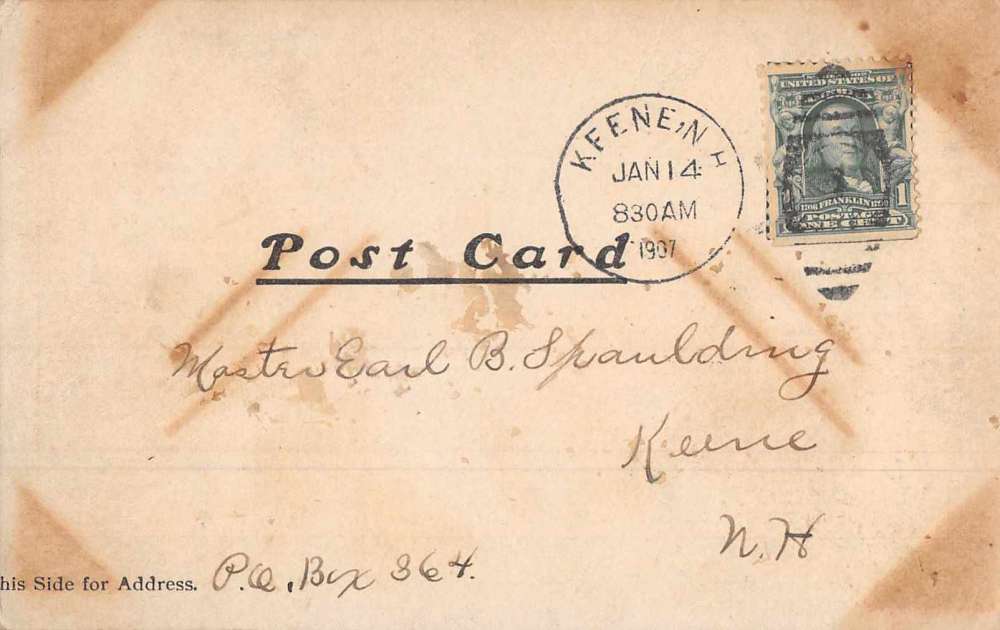 UNITED STATES OF
AMERICA
KEENE, N H
JAN 14
830AM
1907
FRANKLIN
POSTAGE
1
ONE CENT
Post Card
Master Earl B. Spaulding
Keene
N. H
his Side for Address. P.O. Box 364.